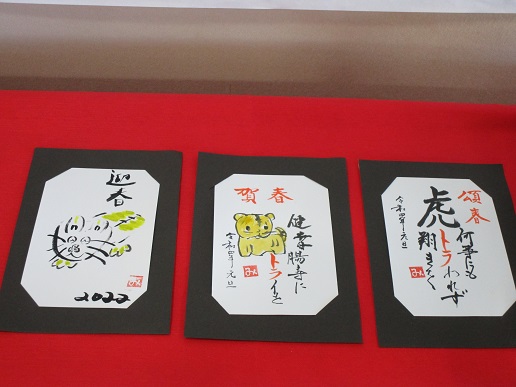 迎春
2022
賀春
健幸腸寿に
トライを
令和四年元旦
頌春
何事にも
虎
トラわれず
令和四年元旦